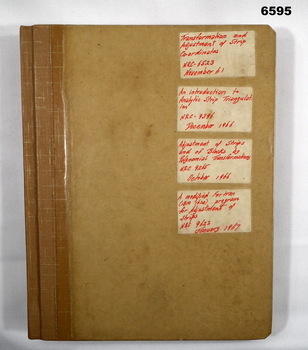 6595
Transformation and
Adjustment of Strip
Coordinates
NRC-6523
November 61
An introduction to
Analytic Strip Triangulat
ion
NRC-9396
December 1966
Adjustment of Strips
and of Blocks by
Polynomial Transformations
NRC 9265
October 1966
A modified Fortran
program
for Adjustment of
Strips
NRC 9623
January 1967